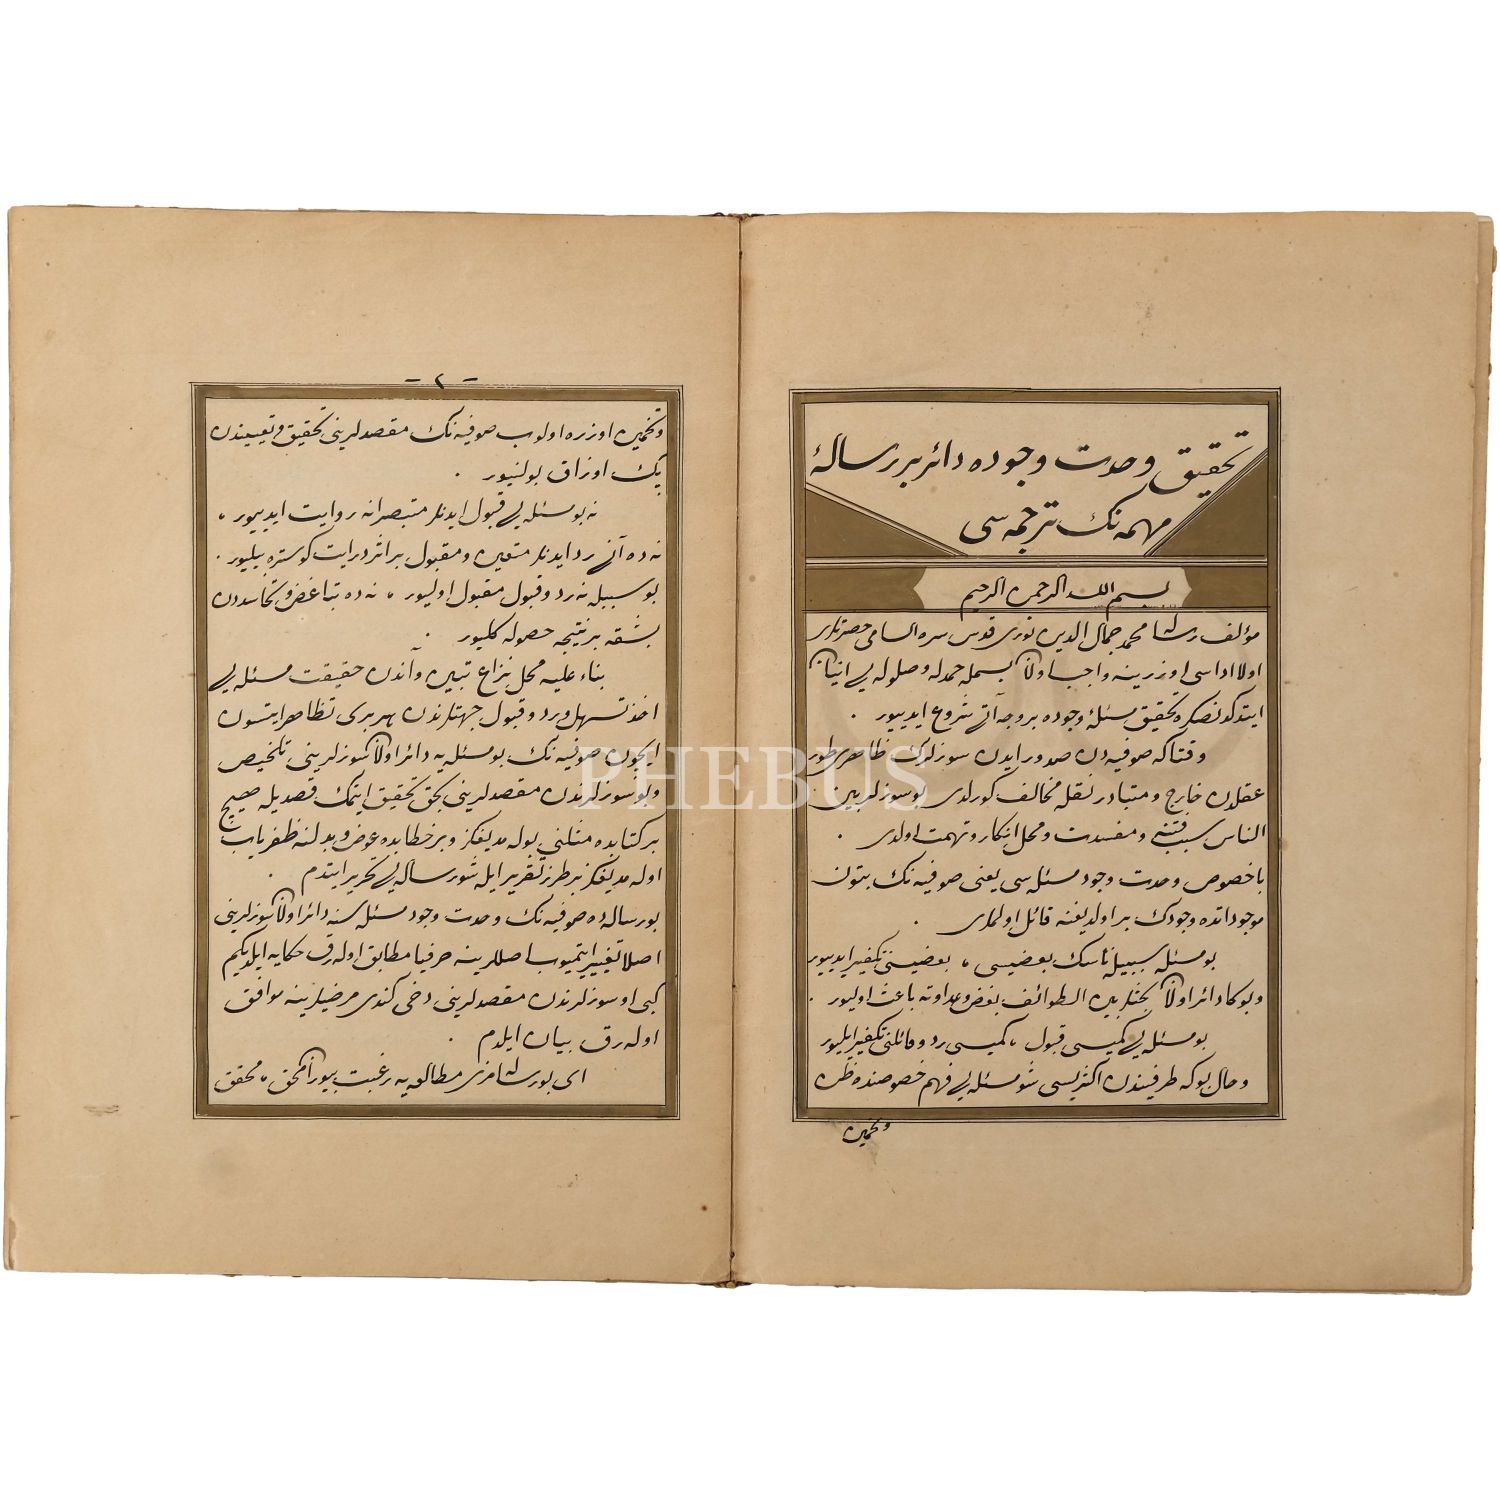 تحقیق وحدت وجوده دائر بر رسالهٔ
مهمه نک ترجمه سی
بسم الله الرحمن الرحیم
مؤلف رساله محمد جمال الدین نوری قدس سره السامی حضرتلری
اولا اداسی اوزرینه واجب اولان بسمله حمدله وصلوله یی اتیان
ایتدکدنصکره تحقیق مسئلهٔ وجوده بروجه آتی شروع ایدییور .
وقتاکه صوفیه دن صدور ایدن سوزلرک ظاهری طور
عقلدن خارج و متبادر نقله مخالف کورلدی بوسوزلر بین
الناس سبب فتنه و مفسدت و محل انکار و تهمت اولدی .
باخصوص وحدت وجود مسئله سی یعنی صوفیه نک بتون
موجوداتده وجودک بر اولدیغنه قائل اولملری .
بومسئله سببیله ناسک بعضیسی ، بعضیسنی تکفیر ایدییور
وبوکا دائر اولان بحثلر بین الطوائف بغض وعداوته باعث اولیور .
بومسئله یی کمیسی قبول ، کمیسی رد وقائلنی تکفیر ایلیور
وحال بوکه طرفیندن اکثریسی شو مسئله یی فهم خصوصنده ظن
وتخمین
- ٢ -
وتخمین اوزره اولوب صوفیه نک مقصدلرینی تحقیق وتعییندن
پک اوزاق بولنیور .
نه بومسئله یی قبول ایدنلر متبصرانه روایت ایدییور ،
نه ده آنی رد ایدنلر متعین ومقبول بر اثر درایت کوستره بیلیور .
بوسببله نه رد وقبول مقبول اولیور ، نه ده تباغض وتحاسددن
بشقه بر نتیجه حصوله کلیور .
بناء علیه محل نزاع تبین وآندن حقیقت مسئله یی
اخذ تسهل ورد وقبول جهتلرندن هر بری تظاهر ایتسون
ایچون صوفیه نک بومسئله یه دائر اولان سوزلرینی تلخیص
وبو سوزلرندن مقصدلرینی بحق تحقیق ایتمک قصدیله صحیح
بر کتابده مثلنی بوله مدیغکز وبر خطابده عوض وبدلنه ظفریاب
اوله مدیغکز بر طرز تقریر ایله شو رساله یی تحریر ایتدم .
بو رساله ده صوفیه نک وحدت وجود مسئله سنه دائر اولان سوزلرینی
اصلا تغییر ایتمیوب اصللرینه حرفیا مطابق اوله رق حکایه ایلدیکم
کبی او سوزلرندن مقصدلرینی دخی کندی مرضیلرینه موافق
اوله رق بیان ایلدم .
ای بو رساله مزی مطالعه یه رغبت بیوران محق ، محقق